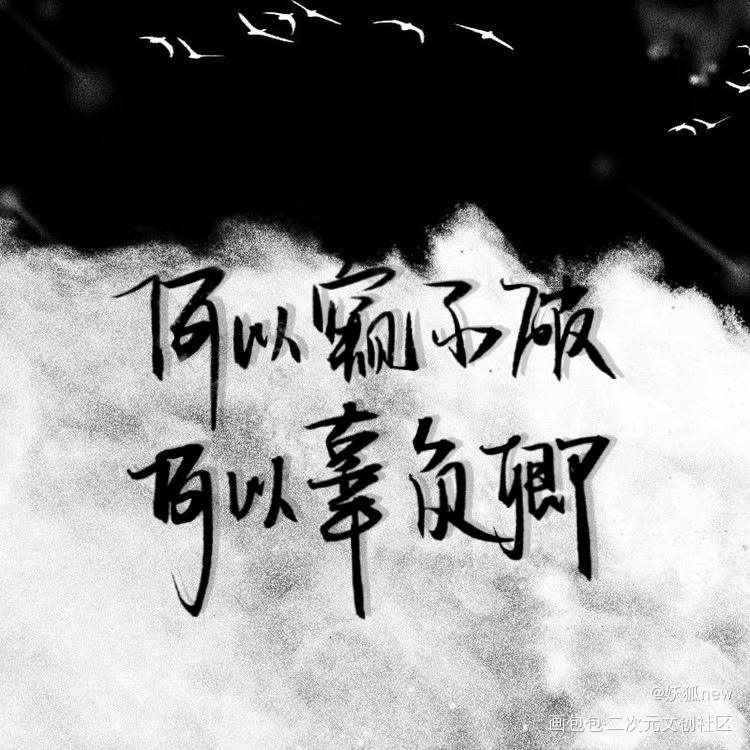 何以窥不破
何以辜负卿
@妖狐new
画包包·二次元文创社区